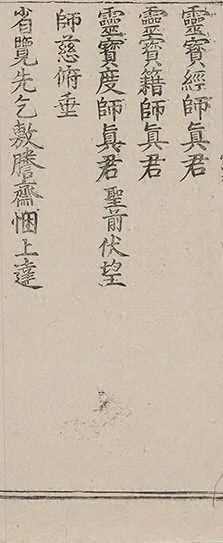 靈寶經師眞君
靈寶籍師眞君
靈寶度師眞君聖前伏望
師慈俯垂
省覽先乞敷謄齋悃上達